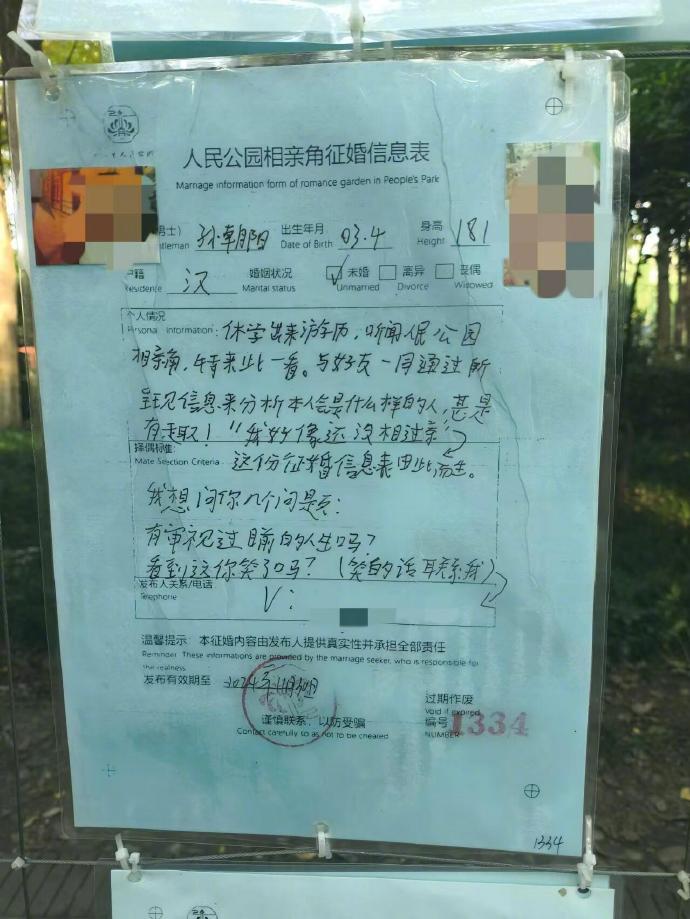 人民公园相亲角征婚信息表
Marriage information form of romance garden in People's Park
男士） 孙朝阳 出生年月 03.4 身高 181
ntleman Date of Birth Height
户籍 汉 婚姻状况 ✓未婚 离异 丧偶
Residence Marital status Unmarried Divorce Widowed
个人情况
Personal Information: 休学出来游历，听闻人民公园
相亲角，特来此一看。与好友一同通过所
呈现信息来分析本人会是什么样的人，甚是
有趣！"我好像还没相过亲"
择偶标准:
Mate Selection Criteria 这份征婚信息表由此而生。
我想问你几个问题：
有审视过目前的人生吗？
看到这你笑了吗？（笑的话联系我）
发布人关系/电话
Telephone V:
温馨提示：本征婚内容由发布人提供真实性并承担全部责任
Reminder: These informations are provided by the marriage seeker, who is responsible for
the realness.
发布有效期至 2024年11月30日
过期作废
Void if expired
谨慎联系，以防受骗 编号 1334
Contact carefully so as not to be cheared NUMBER
1334